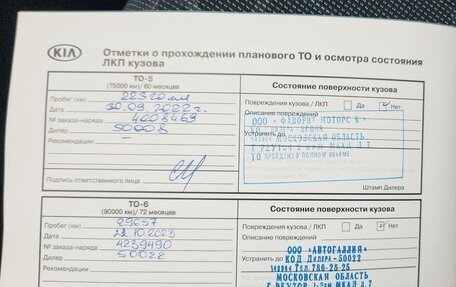 KIA
Отметки о прохождении планового ТО и осмотра состояния
ЛКП кузова
ТО-5
(75000 км)/ 60 месяцев
Состояние поверхности кузова
Пробег (км) 22320 км
Повреждения кузова / ЛКП Да Нет
Дата 30.09.2022г.
Описание повреждений
№ заказа-наряда 4008469
ООО "ФАВОРИТ МОТОРС К"
Дилер 50008
Устранить до
МОСКОВСКАЯ ОБЛАСТЬ,
Рекомендации —
Г РЕУТОВ 2 КМ МКАД Д.7
ТО ПРОЙДЕНО В ПОЛНОМ ОБЪЕМЕ.
Подпись ответственного лица
Штамп Дилера
ТО-6
(90000 км)/ 72 месяцев
Состояние поверхности кузова
Пробег (км) 29657
Повреждения кузова / ЛКП Да Нет
Дата 23.10.2023
Описание повреждений
№ заказа-наряда 4239490
ООО "АВТОГАЛЛИЯ"
Дилер 50022
Устранить до КОД ДИЛЕРА-50022
Рекомендации
143964 Тел.786-25-25
МОСКОВСКАЯ ОБЛАСТЬ
Г РЕУТОВ, 2КМ МКАД Д.7